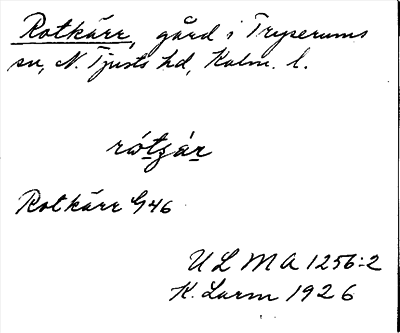 Rotkärr, gård i Tryserums
sn, N. Tjusts hd, Kalm. l.
Rotkärr G46
ULMA 1256:2
K. Larm 1926